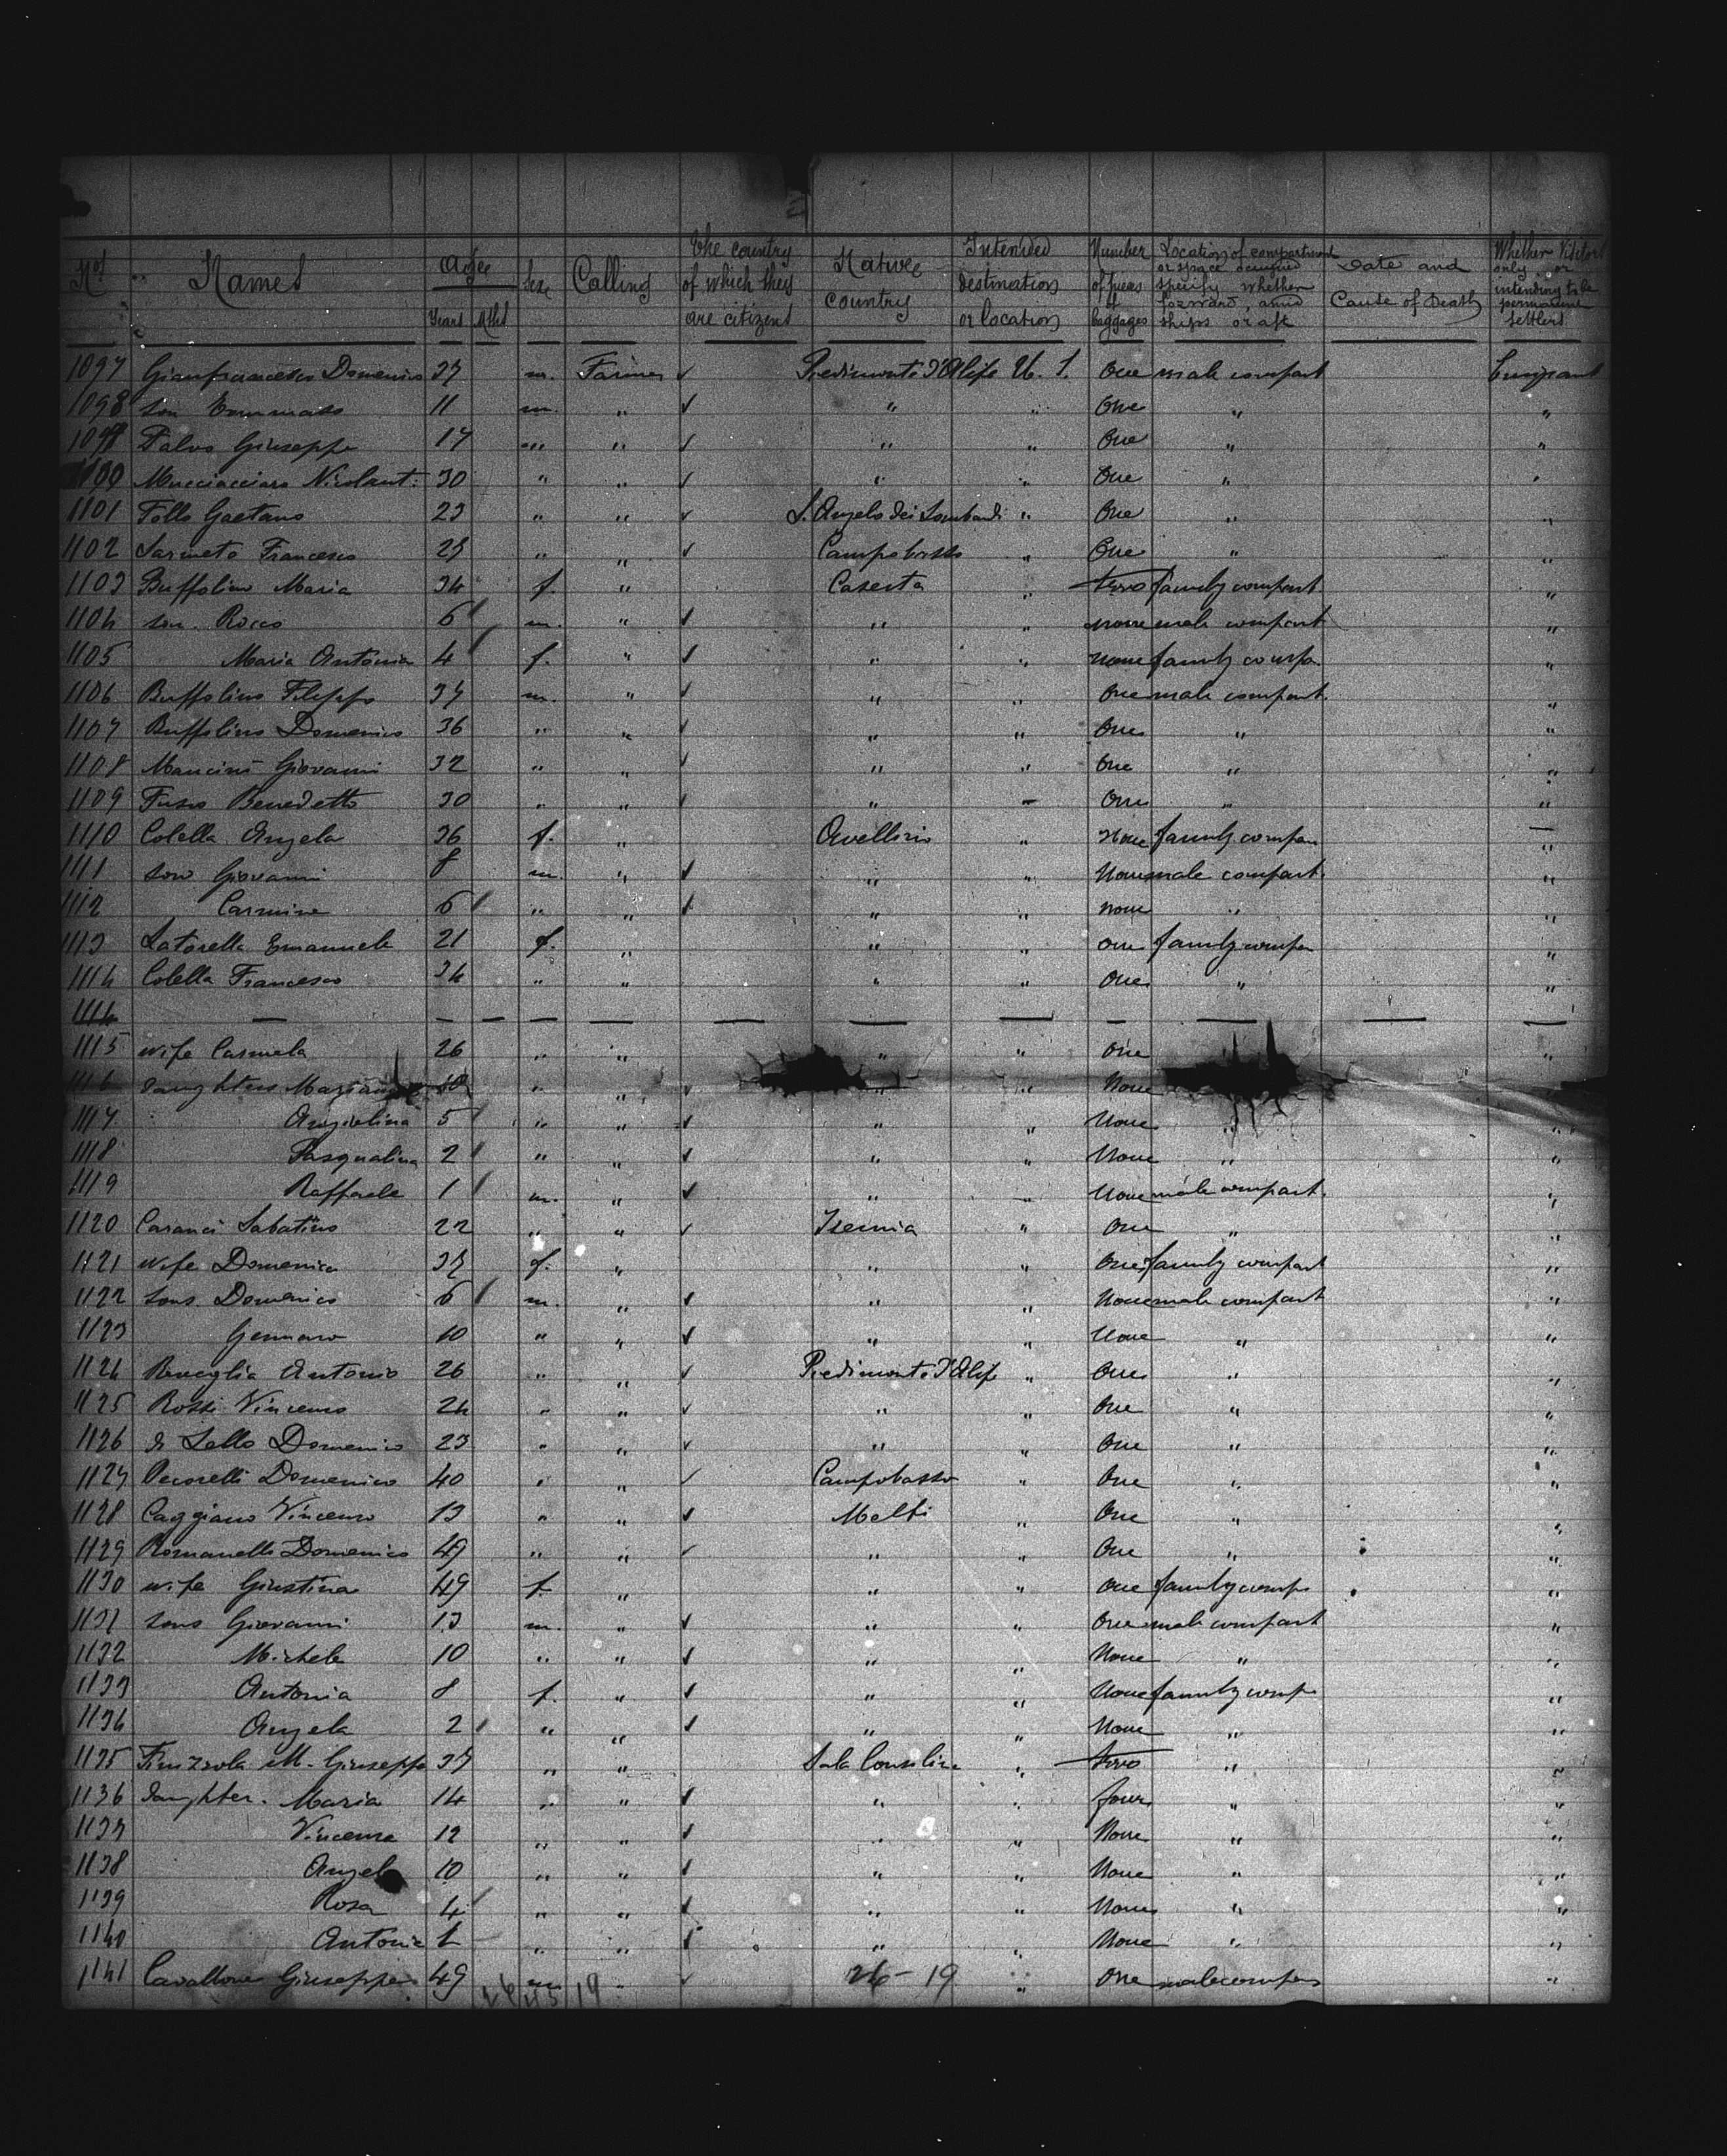 Nos Names Agee Sex Calling The country of which they are citizens Native country Intended destination or location Number of pieces of baggages Location of compartment or space occupied specify whether forward, amid ships or aft Date and Cause of Death Whether Visitors only or intending to be permanent settlers
Years Mths
1097 Gianfrancesco Domenico 37 m. Farmer ✓ Piedimonte d'Alife U. S. One male compart Emigrant
1098 son Tommaso 11 m. " ✓ " " One " "
1099 Falvo Giuseppe 17 m " ✓ " " One " "
1100 Mucciacciaro Nicolant. 30 " " ✓ " " One " "
1101 Follo Gaetano 23 " " ✓ S. Angelo dei Lombardi " One " "
1102 Sarneto Francesco 25 " " ✓ Campobasso " One " "
1103 Buffolino Maria 34 f. " Caserta " two family compart. "
1104 son. Rocco 6 m. " ✓ " " none male compart "
1105 Maria Antonia 4 f. " ✓ " " none family compa. "
1106 Buffolino Filippo 37 m. " ✓ " " One male compart. "
1107 Buffolino Domenico 36 " " ✓ " " One " "
1108 Mancini Giovanni 32 " " ✓ " " One " "
1109 Fusco Benedetto 30 " " ✓ " " One " "
1110 Colella Angela 36 f. " Avellino " None family compar "
1111 son Giovanni 8 m. " ✓ " " None male compart. "
1112 Carmine 6 " " ✓ " " none " "
1113 Latorella Emanuela 21 f. " " " one family compar "
1114 Colella Francesco 34 " " " " One " "
1114 — — — — — — — — — — — —
1115 wife Carmela 26 " " " " One "
1116 daughters 10 " " ✓ " " None "
1117 Angiolina 5 " " ✓ " " None " "
1118 Pasqualina 2 " " ✓ " " None " "
1119 Raffaele 1 m. " ✓ " " None male compart. "
1120 Caranci Sabatino 22 " " ✓ Isernia " One " "
1121 wife Domenica 37 f. " " " One family compart "
1122 sons Domenico 6 m. " ✓ " " None male compart "
1123 Gennaro 10 " " ✓ " " None " "
1124 Reveglia Antonio 26 " " ✓ Piedimonte d'Alife " One " "
1125 Rossi Vincenzo 24 " " ✓ " " One " "
1126 di Lello Domenico 23 " " ✓ " " One " "
1127 Pecorelli Domenico 40 " " ✓ Campobasso " One " "
1128 Caggiano Vincenzo 13 " " ✓ Melfi " One " "
1129 Romanello Domenico 49 " " ✓ " " One " "
1130 wife Giustina 49 f. " " " one family comp "
1131 sons Giovanni 13 m. " ✓ " " One male compart "
1132 Michele 10 " " ✓ " " None " "
1133 Antonia 8 f. " ✓ " " None family comp "
1134 Angela 2 " " ✓ " " None " "
1135 M. Giuseppa 37 " " Sala Consilina " two " "
1136 daughter. Maria 14 " " ✓ " " four " "
1137 Vincenza 12 " " ✓ " " None " "
1138 Angela 10 " " ✓ " " None " "
1139 Rosa 4 " " ✓ " " None " "
1140 Antonia " " ✓ " " None " "
1141 Cavallone Giuseppe 49 m " ✓ 26-19 " One male compar "